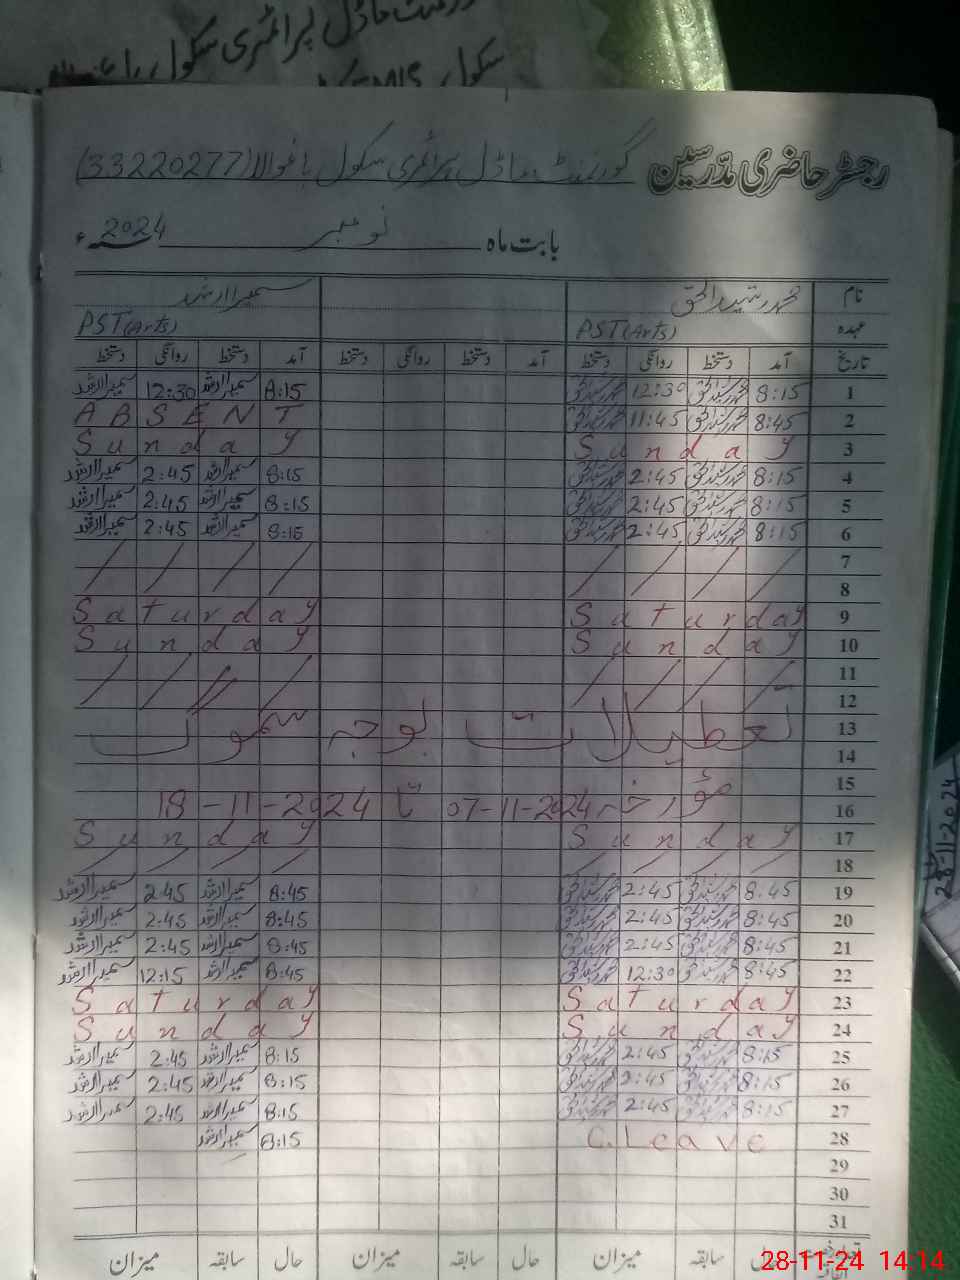 گورنمنٹ ماڈل پرائمری سکول
سکول
رجسٹر حاضری مدّرسین گورنمنٹ ماڈل پرائمری سکول باغوالا (33220277)
بابت ماہ نومبر 2024ء
نام محمد رشید الحق سمیرا ارشد
عہدہ PST(Arts) PST(Arts)
تاریخ آمد دستخط روانگی دستخط آمد دستخط روانگی دستخط آمد دستخط روانگی دستخط
1 8:15 محمد رشید الحق 12:30 محمد رشید الحق 8:15 سمیرا ارشد 12:30 سمیرا ارشد
2 8:45 محمد رشید الحق 11:45 محمد رشید الحق ABSENT
3 Sunday Sunday
4 8:15 محمد رشید الحق 2:45 محمد رشید الحق 8:15 سمیرا ارشد 2:45 سمیرا ارشد
5 8:15 محمد رشید الحق 2:45 محمد رشید الحق 8:15 سمیرا ارشد 2:45 سمیرا ارشد
6 8:15 محمد رشید الحق 2:45 محمد رشید الحق 8:15 سمیرا ارشد 2:45 سمیرا ارشد
7
8
9 Saturday Saturday
10 Sunday Sunday
11
12
13 تعطیلات بوجہ سموگ
14
15
16 مؤرخہ 07-11-2024 تا 18-11-2024
17 Sunday Sunday
18
19 8:45 محمد رشید الحق 2:45 محمد رشید الحق 8:45 سمیرا ارشد 2:45 سمیرا ارشد
20 8:45 محمد رشید الحق 2:45 محمد رشید الحق 8:45 سمیرا ارشد 2:45 سمیرا ارشد
21 8:45 محمد رشید الحق 2:45 محمد رشید الحق 8:45 سمیرا ارشد 2:45 سمیرا ارشد
22 8:45 محمد رشید الحق 12:30 محمد رشید الحق 8:45 سمیرا ارشد 12:15 سمیرا ارشد
23 Saturday Saturday
24 Sunday Sunday
25 8:15 محمد رشید الحق 2:45 محمد رشید الحق 8:15 سمیرا ارشد 2:45 سمیرا ارشد
26 8:15 محمد رشید الحق 2:45 محمد رشید الحق 8:15 سمیرا ارشد 2:45 سمیرا ارشد
27 8:15 محمد رشید الحق 2:45 محمد رشید الحق 8:15 سمیرا ارشد 2:45 سمیرا ارشد
28 C.Leave 8:15 سمیرا ارشد
29
30
31
حال سابقہ میزان حال سابقہ میزان حال سابقہ میزان
28-11-2024
28-11-24 14:14